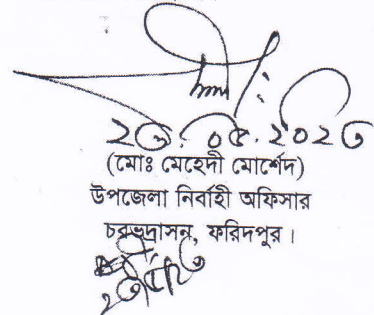 ২৩.০৫.২০২৩
(মোঃ মেহেদী মোর্শেদ)
উপজেলা নির্বাহী অফিসার
চরভদ্রাসন, ফরিদপুর।